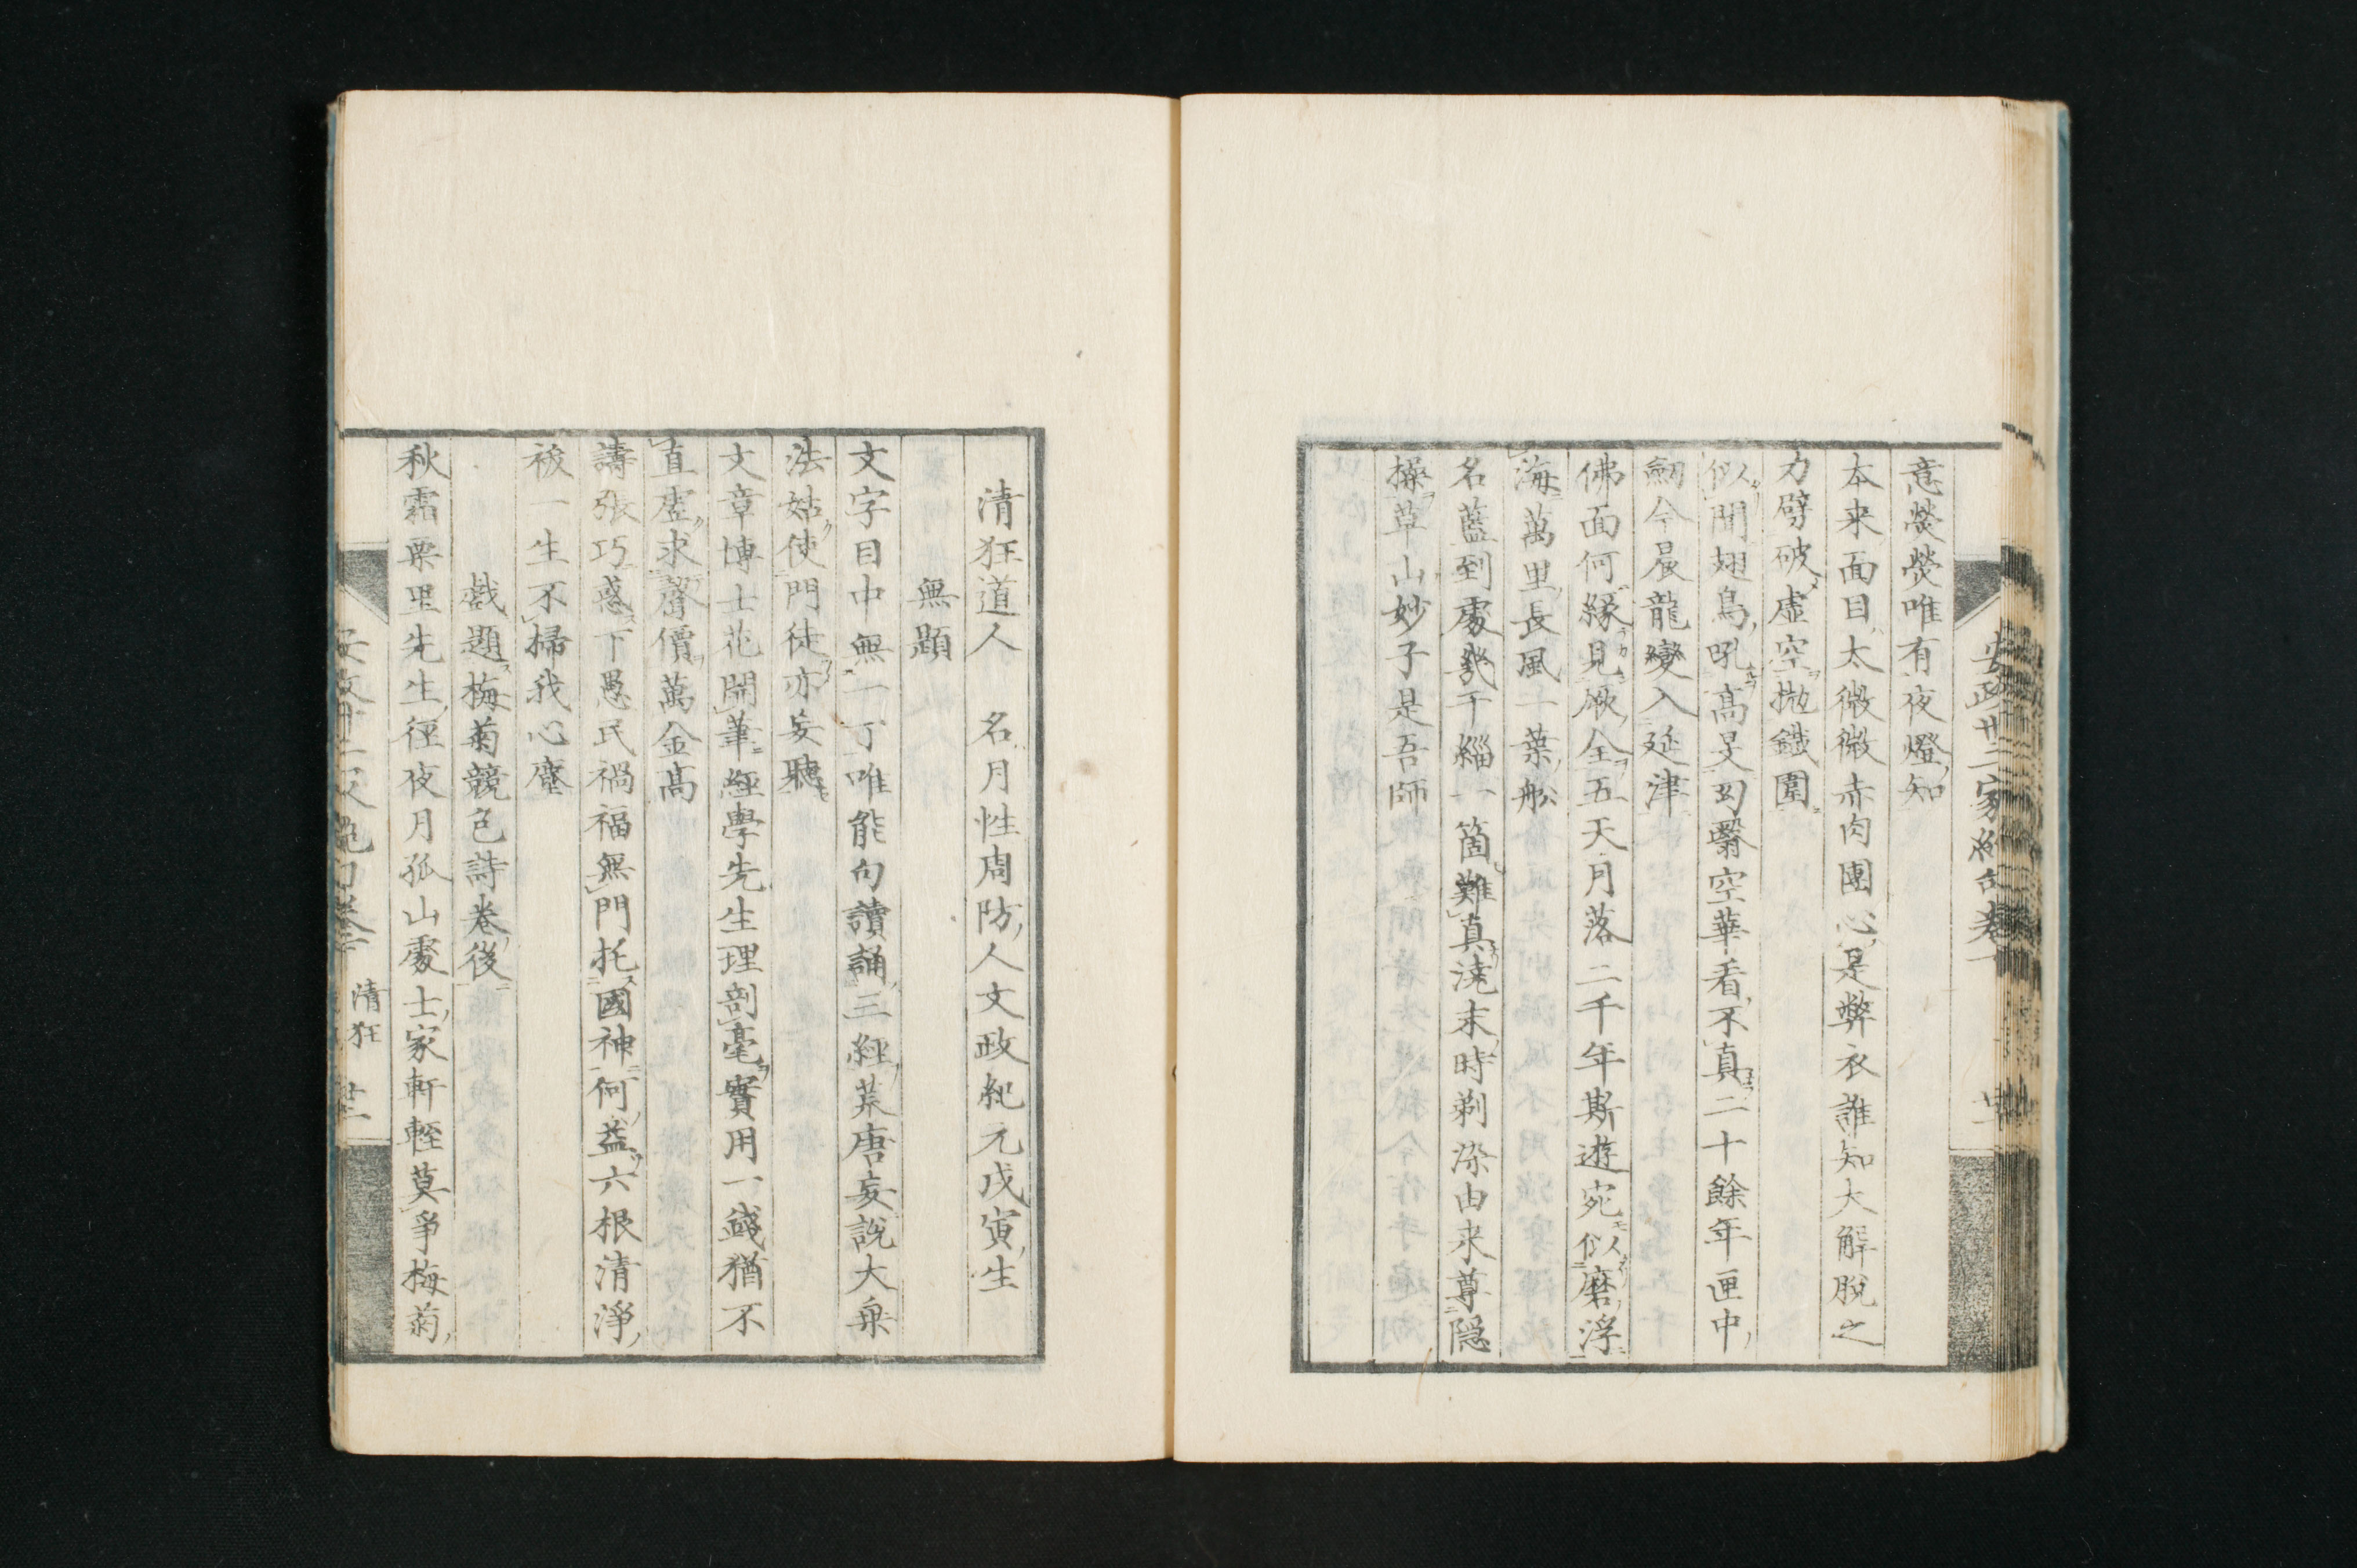 意熒熒唯有夜燈知
本来面目太微微赤肉團心是弊衣誰知大解脱之
力劈破虚空抛鐵圍
似聞翅鳥吼高旻幻翳空華看不真二十餘年匣中
劒今晨龍變入延津
佛面何縁見厥全五天月落二千年斯遊宛似磨浮
海萬里長風一葉舩
名藍到處幾千緇一箇難真澆末時剃染由来尊隠
操草山妙子是吾師
清狂道人 名月性周防人文政紀元戊寅生
無題
文字目中無一丁唯能句讀誦三經荒唐妄説大乗
法姑使門徒亦妄聴
文章博士花開筆經學先生理剖毫實用一錢猶不
直虚求聲價萬金高
譸張巧惑下愚民禍福無門托國神何益六根清淨
祓一生不掃我心塵
戯題梅菊競色詩巻後
秋霜栗里先生徑夜月孤山處士家軒輊莫爭梅菊
清狂